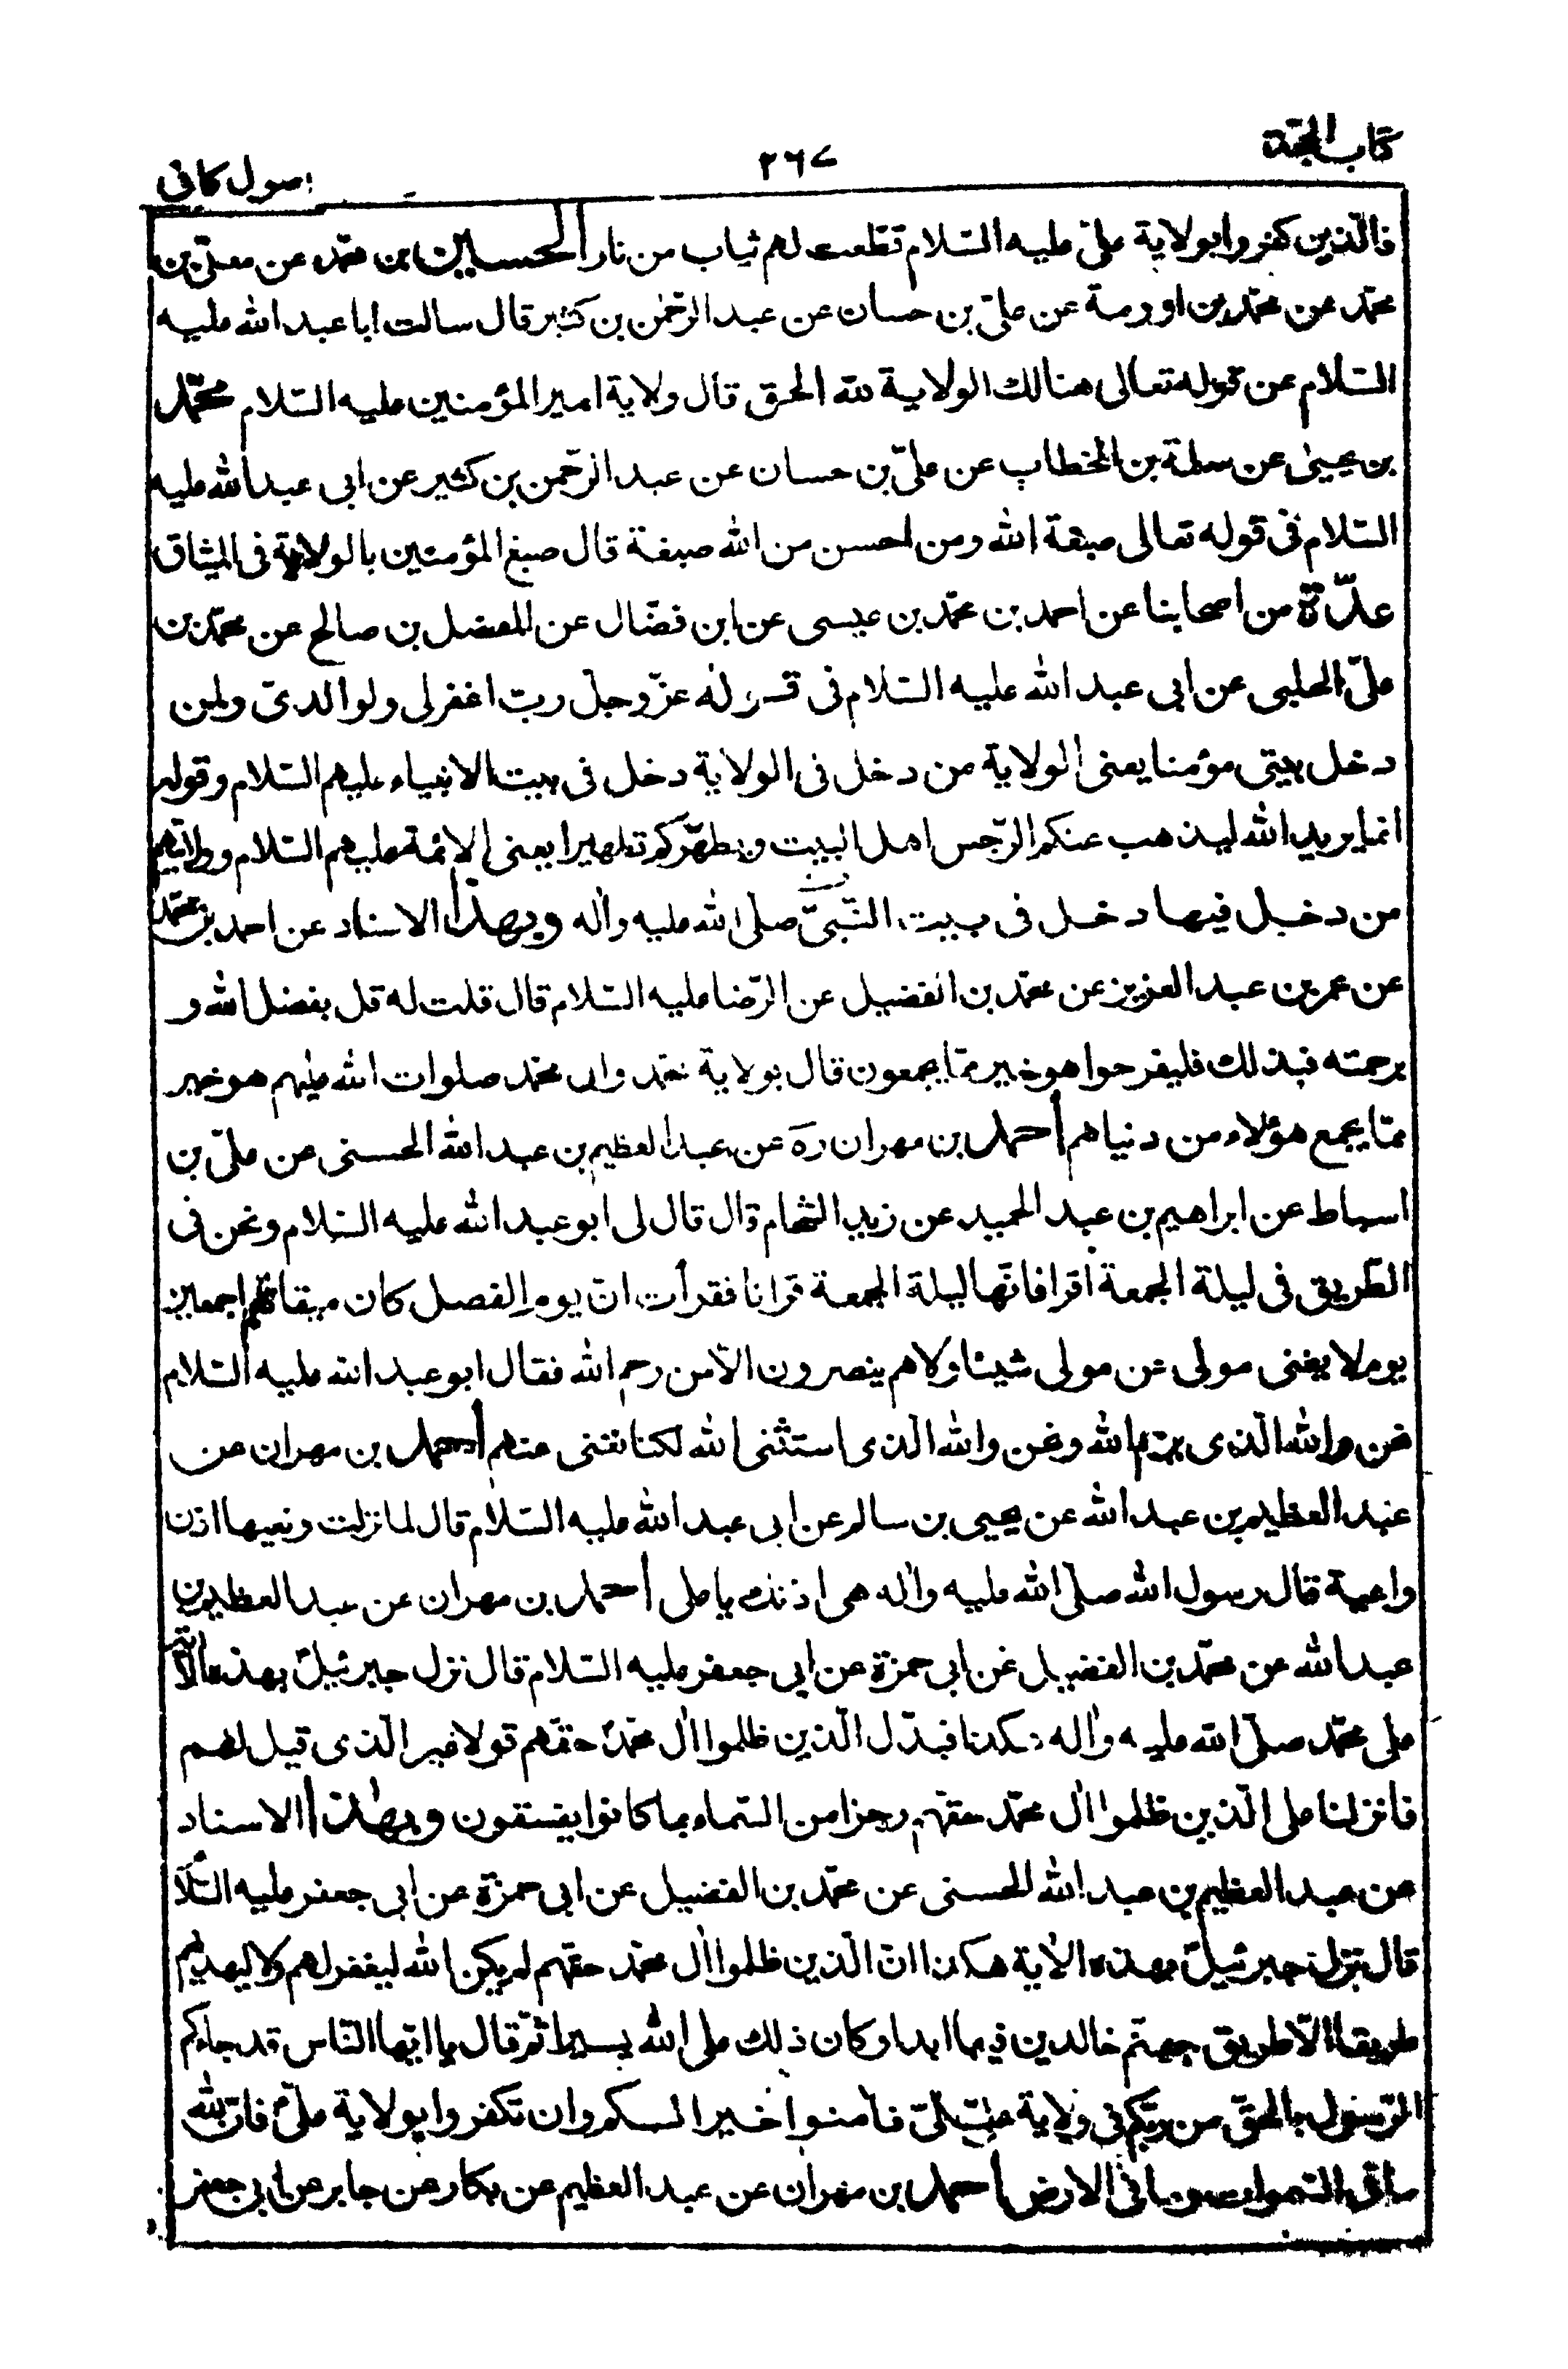 كتاب الحجة
٢٦٧
اصول كافى
فالّذين كفروا بولاية علىّ عليه السّلام قطّعت لهم ثياب من نار الحسين بن محمّد عن معلّى بن
محمّد عن محمّد بن اورمة عن علىّ بن حسان عن عبد الرّحمٰن بن كثير قال سالت ابا عبد الله عليه
السّلام عن قوله تعالى هنالك الولاية لله الحق قال ولاية امير المؤمنين عليه السّلام محمّد
بن يحيىٰ عن سلمة بن الخطاب عن علىّ بن حسان عن عبد الرّحمن بن كثير عن ابى عبد الله عليه
السّلام فى قوله تعالى صبغة الله ومن احسن من الله صبغة قال صبغ المؤمنين بالولاية فى الميثاق
عدّة من اصحابنا عن احمد بن محمّد بن عيسى عن ابن فضّال عن المفضل بن صالح عن محمّد بن
علىّ الحلبى عن ابى عبد الله عليه السّلام فى قوله عزّ وجلّ ربّ اغفر لى ولوالدىّ ولمن
دخل بيتى مؤمنا يعنى الولاية من دخل فى الولاية دخل فى بيت الانبياء عليهم السّلام وقوله
انما يريد الله ليذهب عنكم الرّجس اهل البيت ويطهّركم تطهيرا يعنى الائمّة عليهم السّلام وولايتهم
من دخل فيها دخل فى بيت النّبىّ صلّى الله عليه واٰله وبهذا الاسناد عن احمد بن محمّد
عن عمر بن عبد العزيز عن محمّد بن الفضيل عن الرّضا عليه السّلام قال قلت له قل بفضل الله و
برحمته فبذلك فليفرحوا هو خير ممّا يجمعون قال بولاية محمّد وال محمّد صلوات الله عليهم هو خير
ممّا يجمع هؤلاء من دنياهم احمد بن مهران ره عن عبد العظيم بن عبد الله الحسنى عن علىّ بن
اسباط عن ابراهيم بن عبد الحميد عن زيد الشّحام قال قال لى ابو عبد الله عليه السّلام ونحن فى
الطّريق فى ليلة الجمعة اقرا فانّها ليلة الجمعة قرانا فقرأت انّ يوم الفصل كان ميقاتهم اجمعين
يوم لا يغنى مولى عن مولى شيئا ولا هم ينصرون الّا من رحم الله فقال ابو عبد الله عليه السّلام
نحن والله الّذى يرحم الله ونحن والله الّذى استثنى الله لكنا نغنى عنهم احمد بن مهران عن
عبد العظيم بن عبد الله عن يحيى بن سالم عن ابى عبد الله عليه السّلام قال لما نزلت وتعيها اذن
واعية قال رسول الله صلّى الله عليه واٰله هى اذنك يا على احمد بن مهران عن عبد العظيم بن
عبد الله عن محمّد بن الفضيل عن ابى حمزة عن ابى جعفر عليه السّلام قال نزل جبرئيلؑ بهذه الاية
على محمّد صلّى الله عليه واٰله هكذا فبدّل الّذين ظلموا اٰل محمّدؑ حقّهم قولا غير الّذى قيل لهم
فانزلنا على الّذين ظلموا اٰل محمّد حقّهم رجزا من السّماء بما كانوا يفسقون وبهٰذا الاسناد
عن عبد العظيم بن عبد الله الحسنى عن محمّد بن الفضيل عن ابى حمزة عن ابى جعفر عليه السّلا
قال نزل جبرئيلؑ بهذه الاٰية هكذا انّ الّذين ظلموا اٰل محمّد حقّهم لم يكن الله ليغفر لهم ولا ليهديهم
طريقا الّا طريق جهنّم خالدين فيها ابدا وكان ذلك على الله يسيرا ثمّ قال يا ايّها النّاس قد جاءكم
الرّسول بالحقّ من ربّكم فى ولاية علىّ فاٰمنوا خيرا لكم وان تكفروا بولاية علىّؑ فانّ لله
ما فى السّموات وما فى الارض احمد بن مهران عن عبد العظيم عن بكار عن جابر عن ابى جعفر